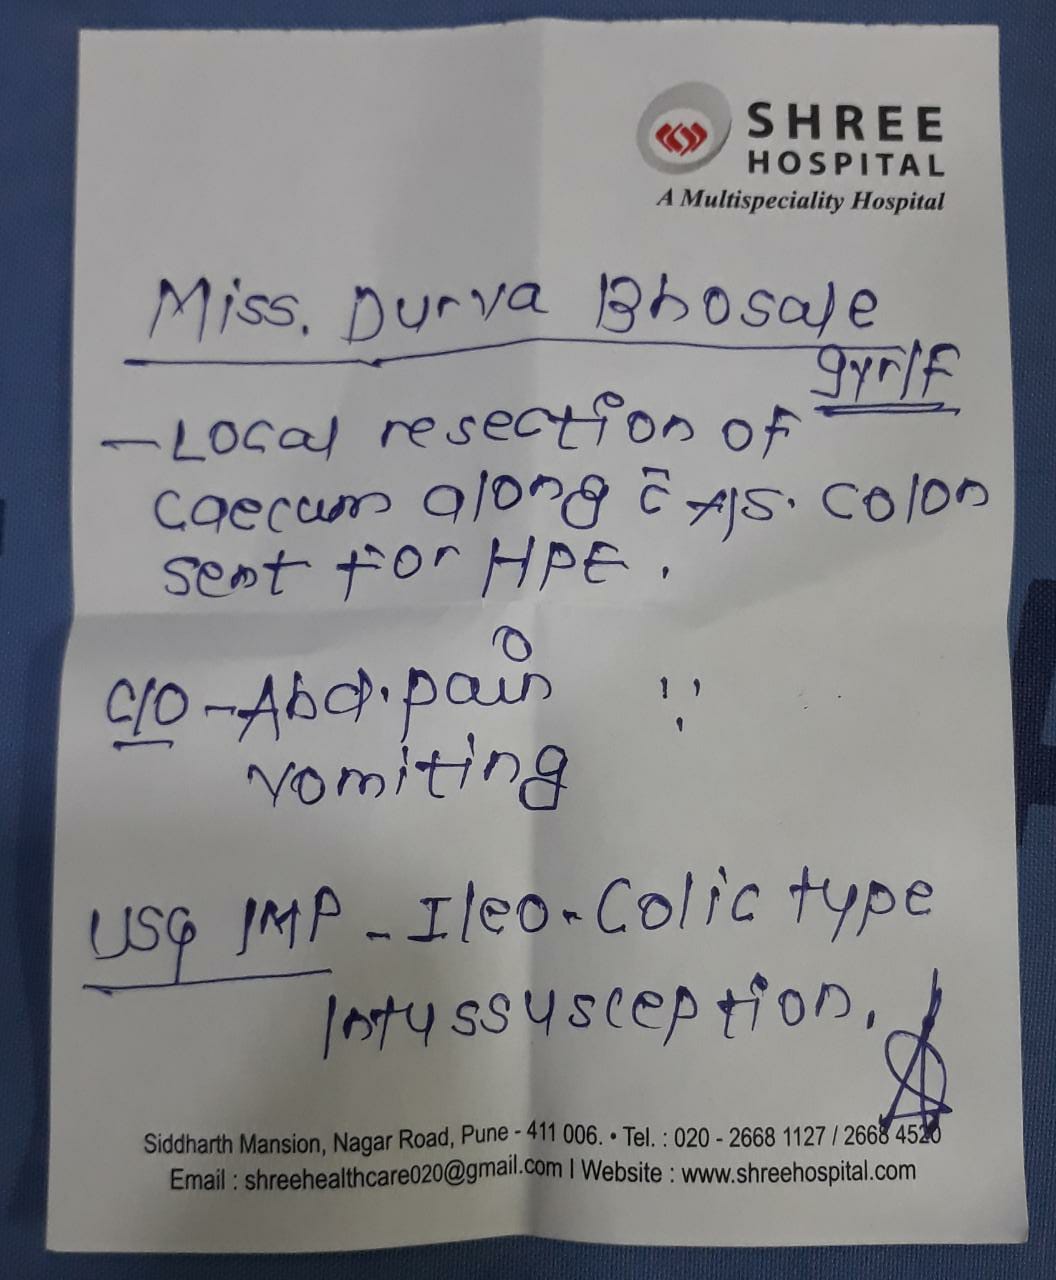 SHREE
HOSPITAL
A Multispeciality Hospital
Miss. Durva Bhosale
9yr/F
- Local resection of
caecum along c̄ A/S. Colon
sent for HPE.
C/O - Abd. pain
vomiting
USG IMP - Ileo-Colic type
Intussusception.
Siddharth Mansion, Nagar Road, Pune - 411 006. • Tel. : 020 - 2668 1127 / 2668 4520
Email : shreehealthcare020@gmail.com I Website : www.shreehospital.com